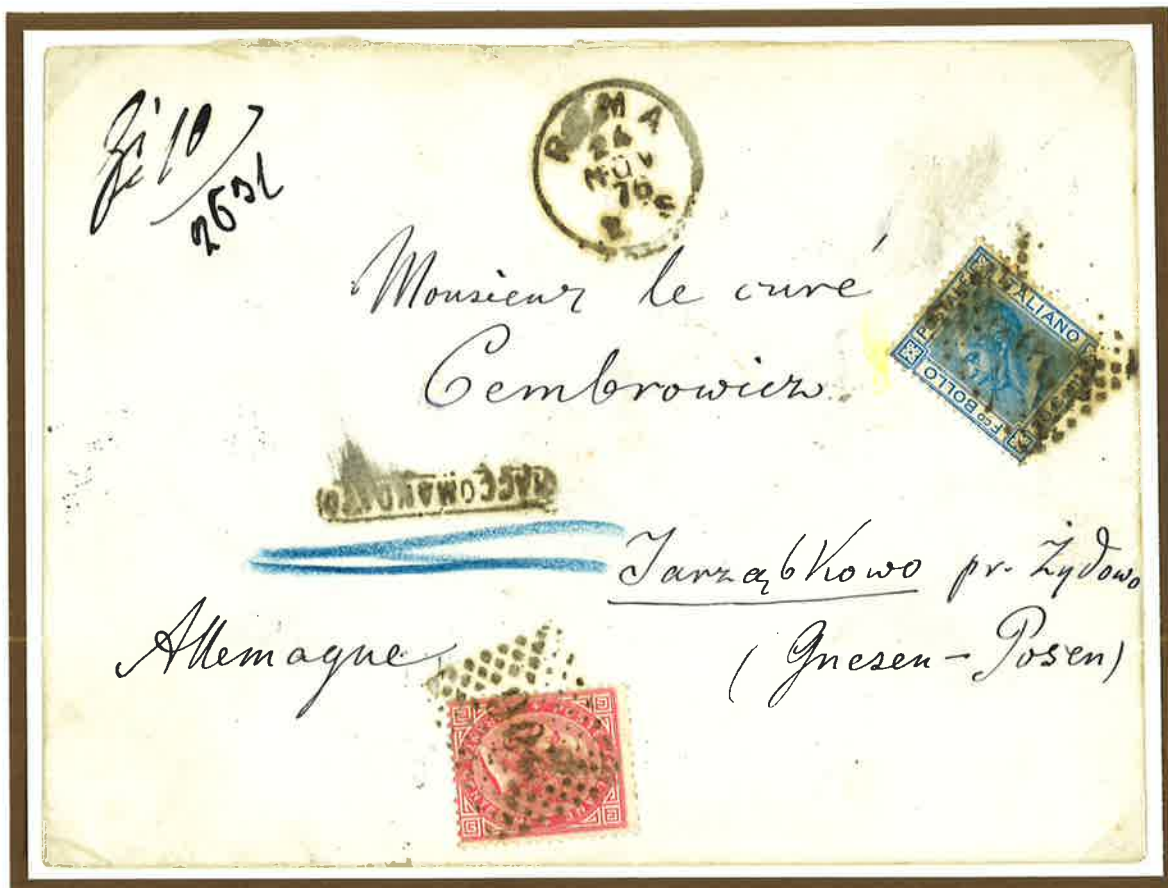 10
2631
ROMA
24
NOV
76
2 S
Monsieur le curé
Cembrowicz
POSTALE ITALIANO
Fco BOLLO
RACCOMANDATO
Jarząbkowo pr. Żydowo
Allemagne
(Gnesen - Posen)